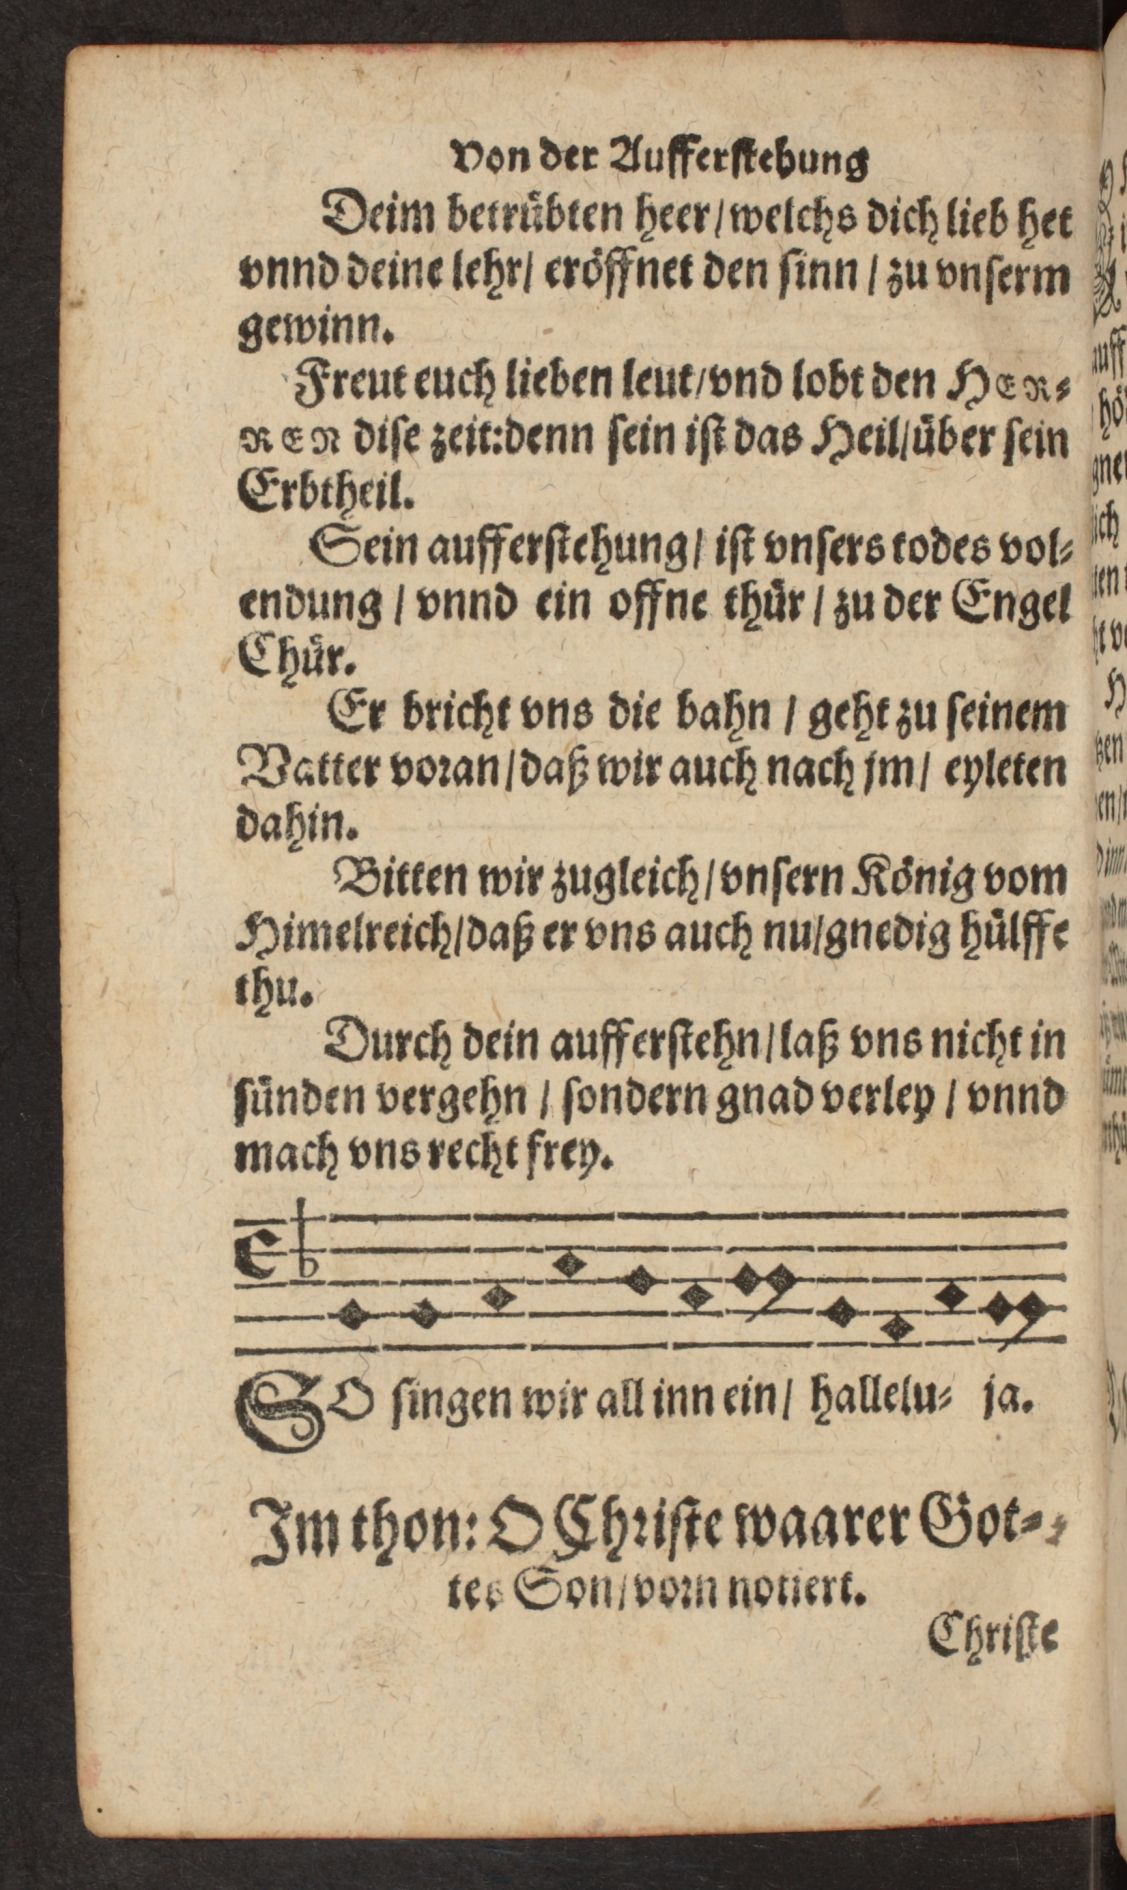 Von der Aufferstehung
Deim betrübten heer/ welchs dich lieb het
vnnd deine lehr/ eröffnet den sinn / zu vnserm
gewinn.
Freut euch lieben leut/ vnd lobt den HER⸗
REN dise zeit: denn sein ist das Heil/ über sein
Erbtheil.
Sein aufferstehung/ ist vnsers todes vol⸗
endung / vnnd ein offne thür / zu der Engel
Chür.
Er bricht vns die bahn / geht zu seinem
Vatter voran/ daß wir auch nach jm/ eyleten
dahin.
Bitten wir zugleich/ vnsern König vom
Himelreich/ daß er vns auch nu/ gnedig hülffe
thu.
Durch dein aufferstehn/ laß vns nicht in
sünden vergehn / sondern gnad verley / vnnd
mach vns recht frey.
SO singen wir all inn ein/ hallelu⸗ ja.
Im thon: O Christe waarer Got⸗
tes Son/ vorn notiert.
Christe